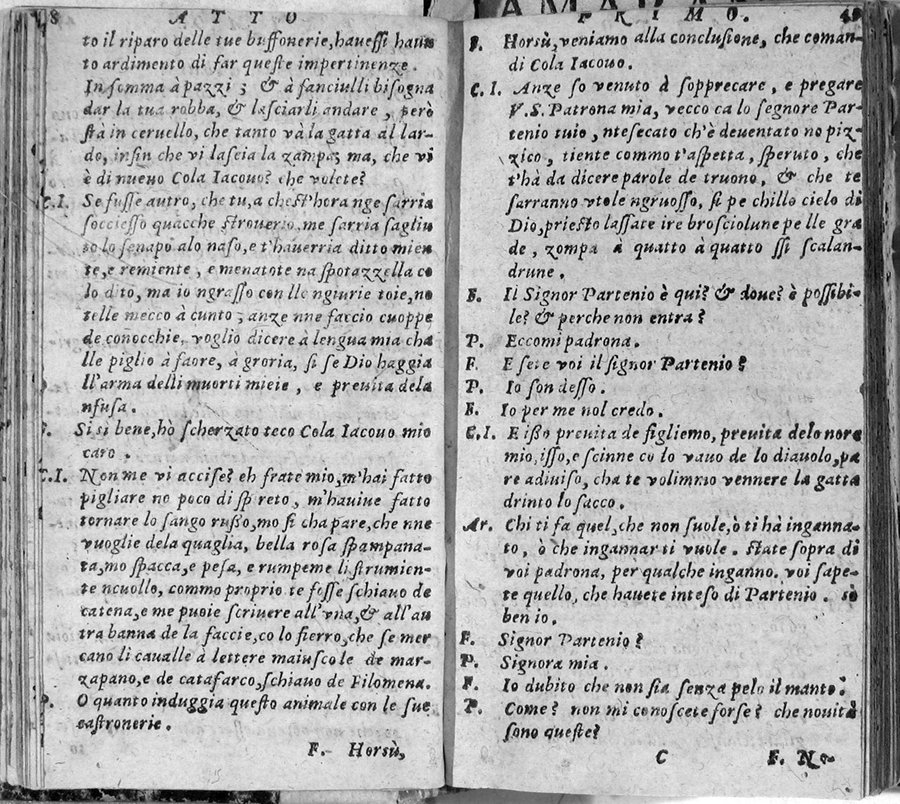 8 ATTO
to il riparo delle tue buffonerie, havessi hauu
to ardimento di far queste impertinenze.
In somma à pazzi ; & à fanciulli bisogna
dar la tua robba, & lasciarli andare , però
stà in ceruello, che tanto và la gatta al lar-
do, insin che vi lascia la zampa; ma, che vi
è di nuevo Cola Iacouo? che volete?
C.I. Se fusse autro, che tu, a chest'hora nge sarria
socciesso quacche strouerio, me sarria sagliu
to lo senapo alo naso, e t'hauerria ditto mien
te, e remiente , e menatote na spotazzella co
lo dito, ma io ngrasso con lle ngiurie toie, no
telle mecco à cunto ; anze nne faccio cuoppe
de conocchie, voglio dicere à lengua mia cha
lle piglio à faore, à groria, si se Dio haggia
ll'arma delli muorti mieie , e preuita dela
nfusa.
F. Si si bene, hò scherzato teco Cola Iacouo mio
caro .
C.I. Non me vi accise? eh frate mio, m'hai fatto
pigliare no poco di spireto , m'hauiue fatto
tornare lo sango russo, mo si cha pare, che nne
vuoglie dela quaglia, bella rosa spampana-
ta, mo spacca, e pesa, e rumpeme li strumien-
te ncuollo, commo proprio te fosse schiauo de
catena, e me puoie scriuere all'vna, & all'au
tra banna de la faccie, co lo fierro, che se mer
cano li caualle à lettere maiuscole de mar-
zapano, e de catafarco, schiauo de Filomena.
P. O quanto induggia questo animale con le sue
castronerie .
F. Horsù,
PRIMO. 49
F. Horsù, veniamo alla conclusione, che coman-
di Cola Iacouo.
C.I. Anze so venuto à sopprecare , e pregare
V.S. Patrona mia, vecco ca lo segnore Par-
tenio tuio , ntesecato ch'è deuentato no piz-
zico , tiente commo t'aspetta, speruto , che
t'hà da dicere parole de truono, & che te
sarranno vtole ngruosso, si pe chillo cielo di
Dio, priesto lassate ire brosciolune pe lle gra
de , zompa à quatto à quatto ssi scalan-
drune .
F. Il Signor Partenio è qui? & doue? è possibi-
le? & perche non entra?
P. Eccomi padrona.
F. E sete voi il signor Partenio?
P. Io son desso .
F. Io per me nol credo .
C.I. E isso preuita de figliemo, preuita delo nore
mio, isso, e scinne co lo vauo de lo diauolo, pa
re adiuiso, cha te volimmo vennere la gatta
drinto lo sacco.
Ar. Chi ti fa quel, che non suole, ò ti hà inganna-
to, ò che ingannar ti vuole . state sopra di
voi padrona, per qualche inganno. voi sape-
te quello, che hauete inteso di Partenio . so
ben io.
F. Signor Partenio?
P. Signora mia .
F. Io dubito che non sia senza pelo il manto?
P. Come? non mi conoscete forse? che nouità
sono queste?
C F. No-